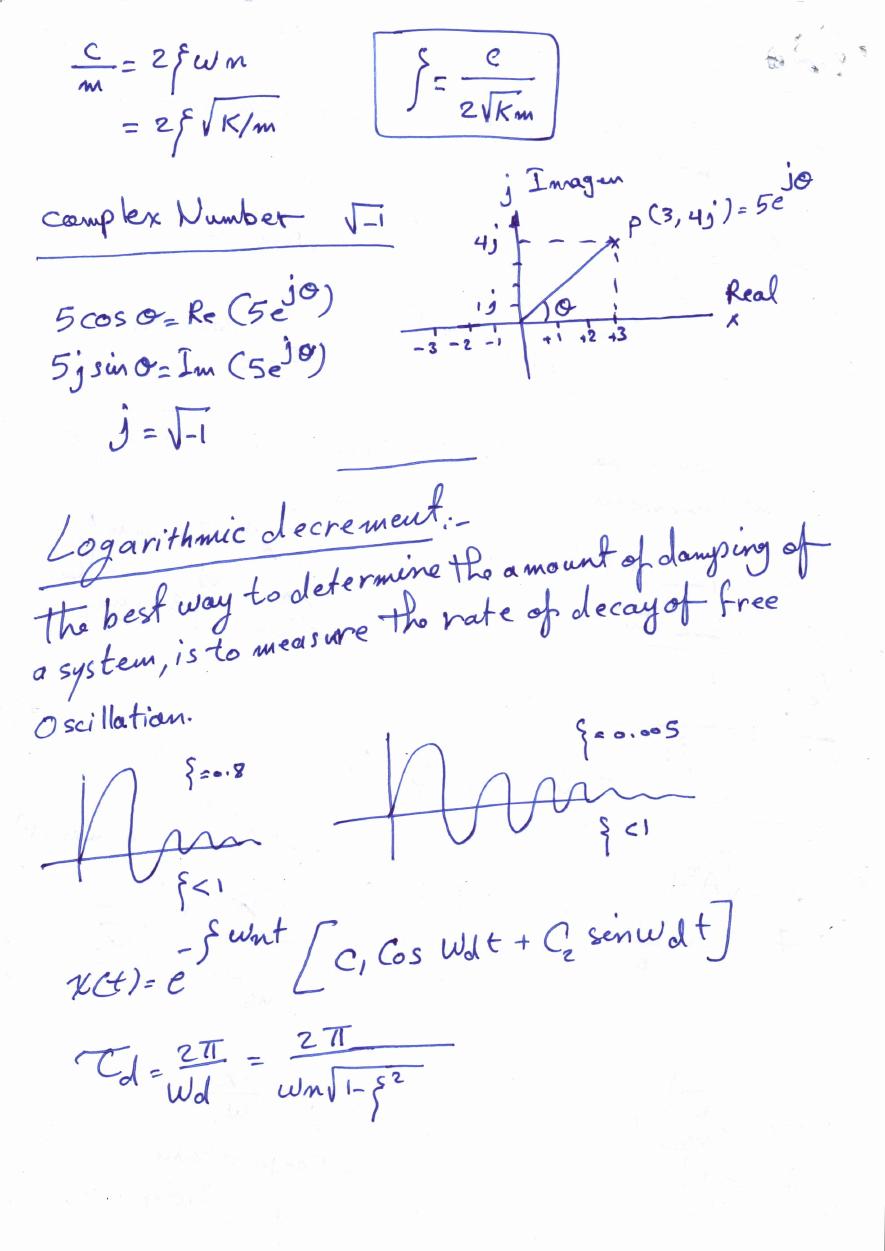 c/m = 2ξ ωn
= 2ξ √K/m
ξ = e / 2√Km
complex Number √-1
j Imagen
4j
P(3, 4j) = 5e^jθ
1j
θ
Real
x
-3 -2 -1 +1 +2 +3
5 cos θ = Re (5e^jθ)
5j sin θ = Im (5e^jθ)
j = √-1
Logarithmic decrement:-
The best way to determine the amount of damping of
a system, is to measure the rate of decay of free
Oscillation.
ξ=0.8
ξ<1
ξ=0.005
ξ<1
x(t) = e^-ξωnt [C₁ Cos Wdt + C₂ sin wdt]
τd = 2π/Wd = 2π / ωn√1-ξ²